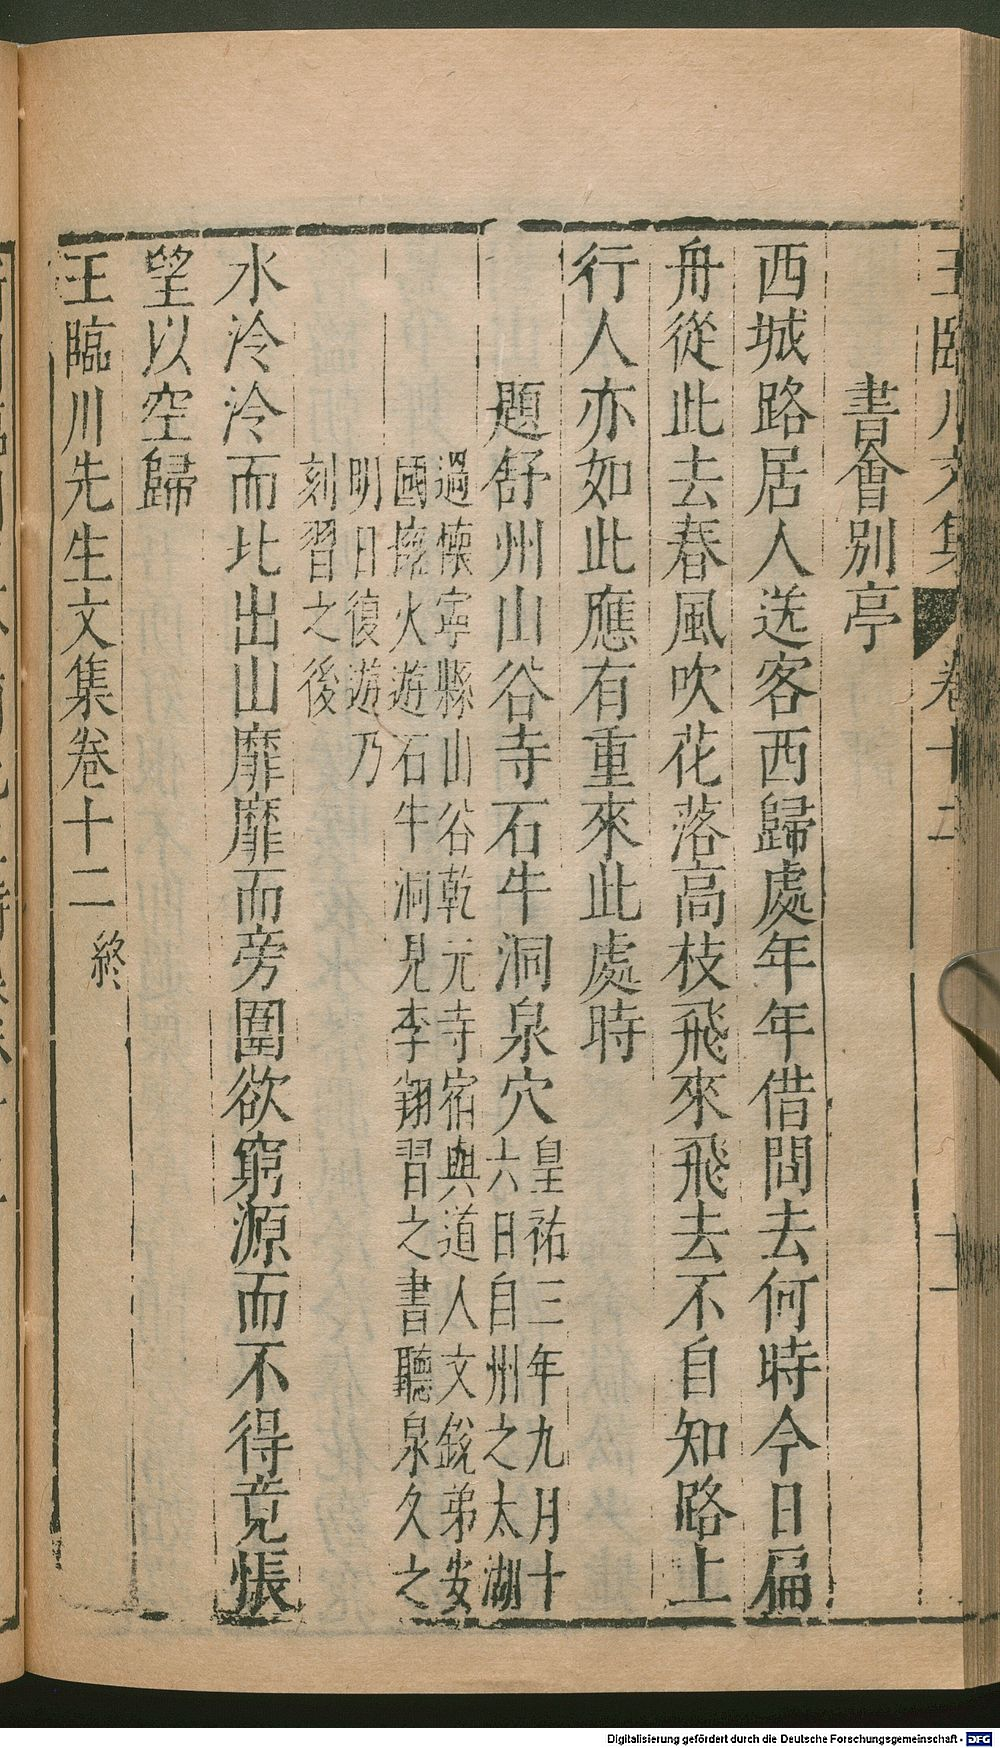 王臨川文集 卷十二 十一
書會別亭
西城路居人送客西歸處年年借問去何時今日扁
舟從此去春風吹花落高枝飛來飛去不自知路上
行人亦如此應有重來此處時
題舒州山谷寺石牛洞泉穴
皇祐三年九月十
六日自州之太湖
過懷寧縣山谷乾元寺宿與道人文銳弟安
國擁火遊石牛洞見李翱習之書聽泉久之
明日復遊乃
刻習之後
水泠泠而北出山靡靡而旁圍欲窮源而不得竟悵
望以空歸
王臨川先生文集卷十二 終
Digitalisierung gefördert durch die Deutsche Forschungsgemeinschaft - DFG